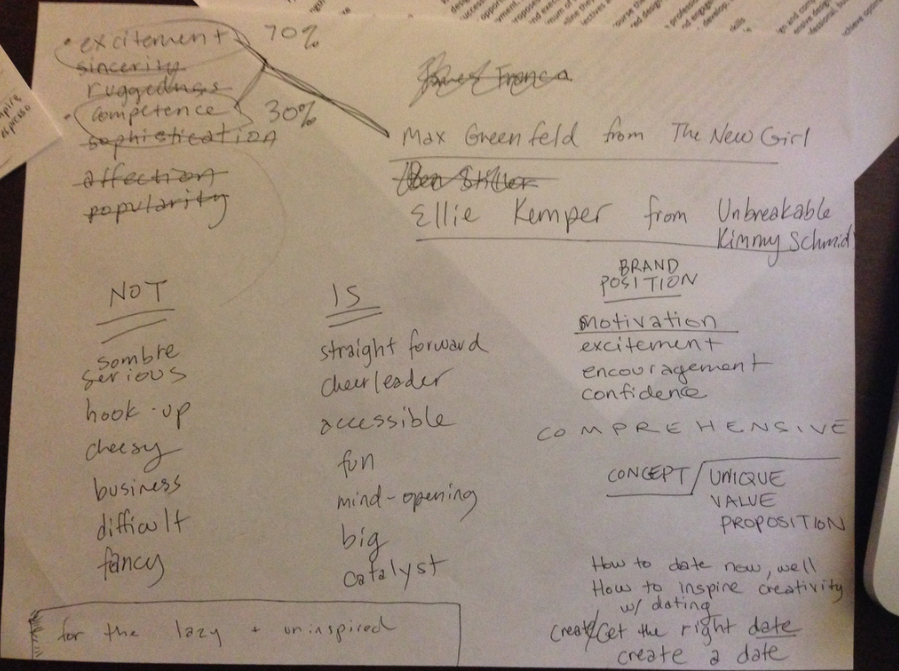 • excitement 70%
sincerity
ruggedness
• competence 30%
sophistication
affection
popularity
James Franco
Max Greenfeld from The New Girl
Ben Stiller
Ellie Kemper from Unbreakable
Kimmy Schmid
NOT
sombre
serious
hook-up
cheesy
business
difficult
fancy
IS
straight forward
cheerleader
accessible
fun
mind-opening
big
catalyst
BRAND
POSITION
motivation
excitement
encouragement
confidence
COMPREHENSIVE
CONCEPT / UNIQUE
VALUE
PROPOSITION
How to date now, well
How to inspire creativity
w/ dating
Create/Get the right date
create a date
for the lazy + uninspired